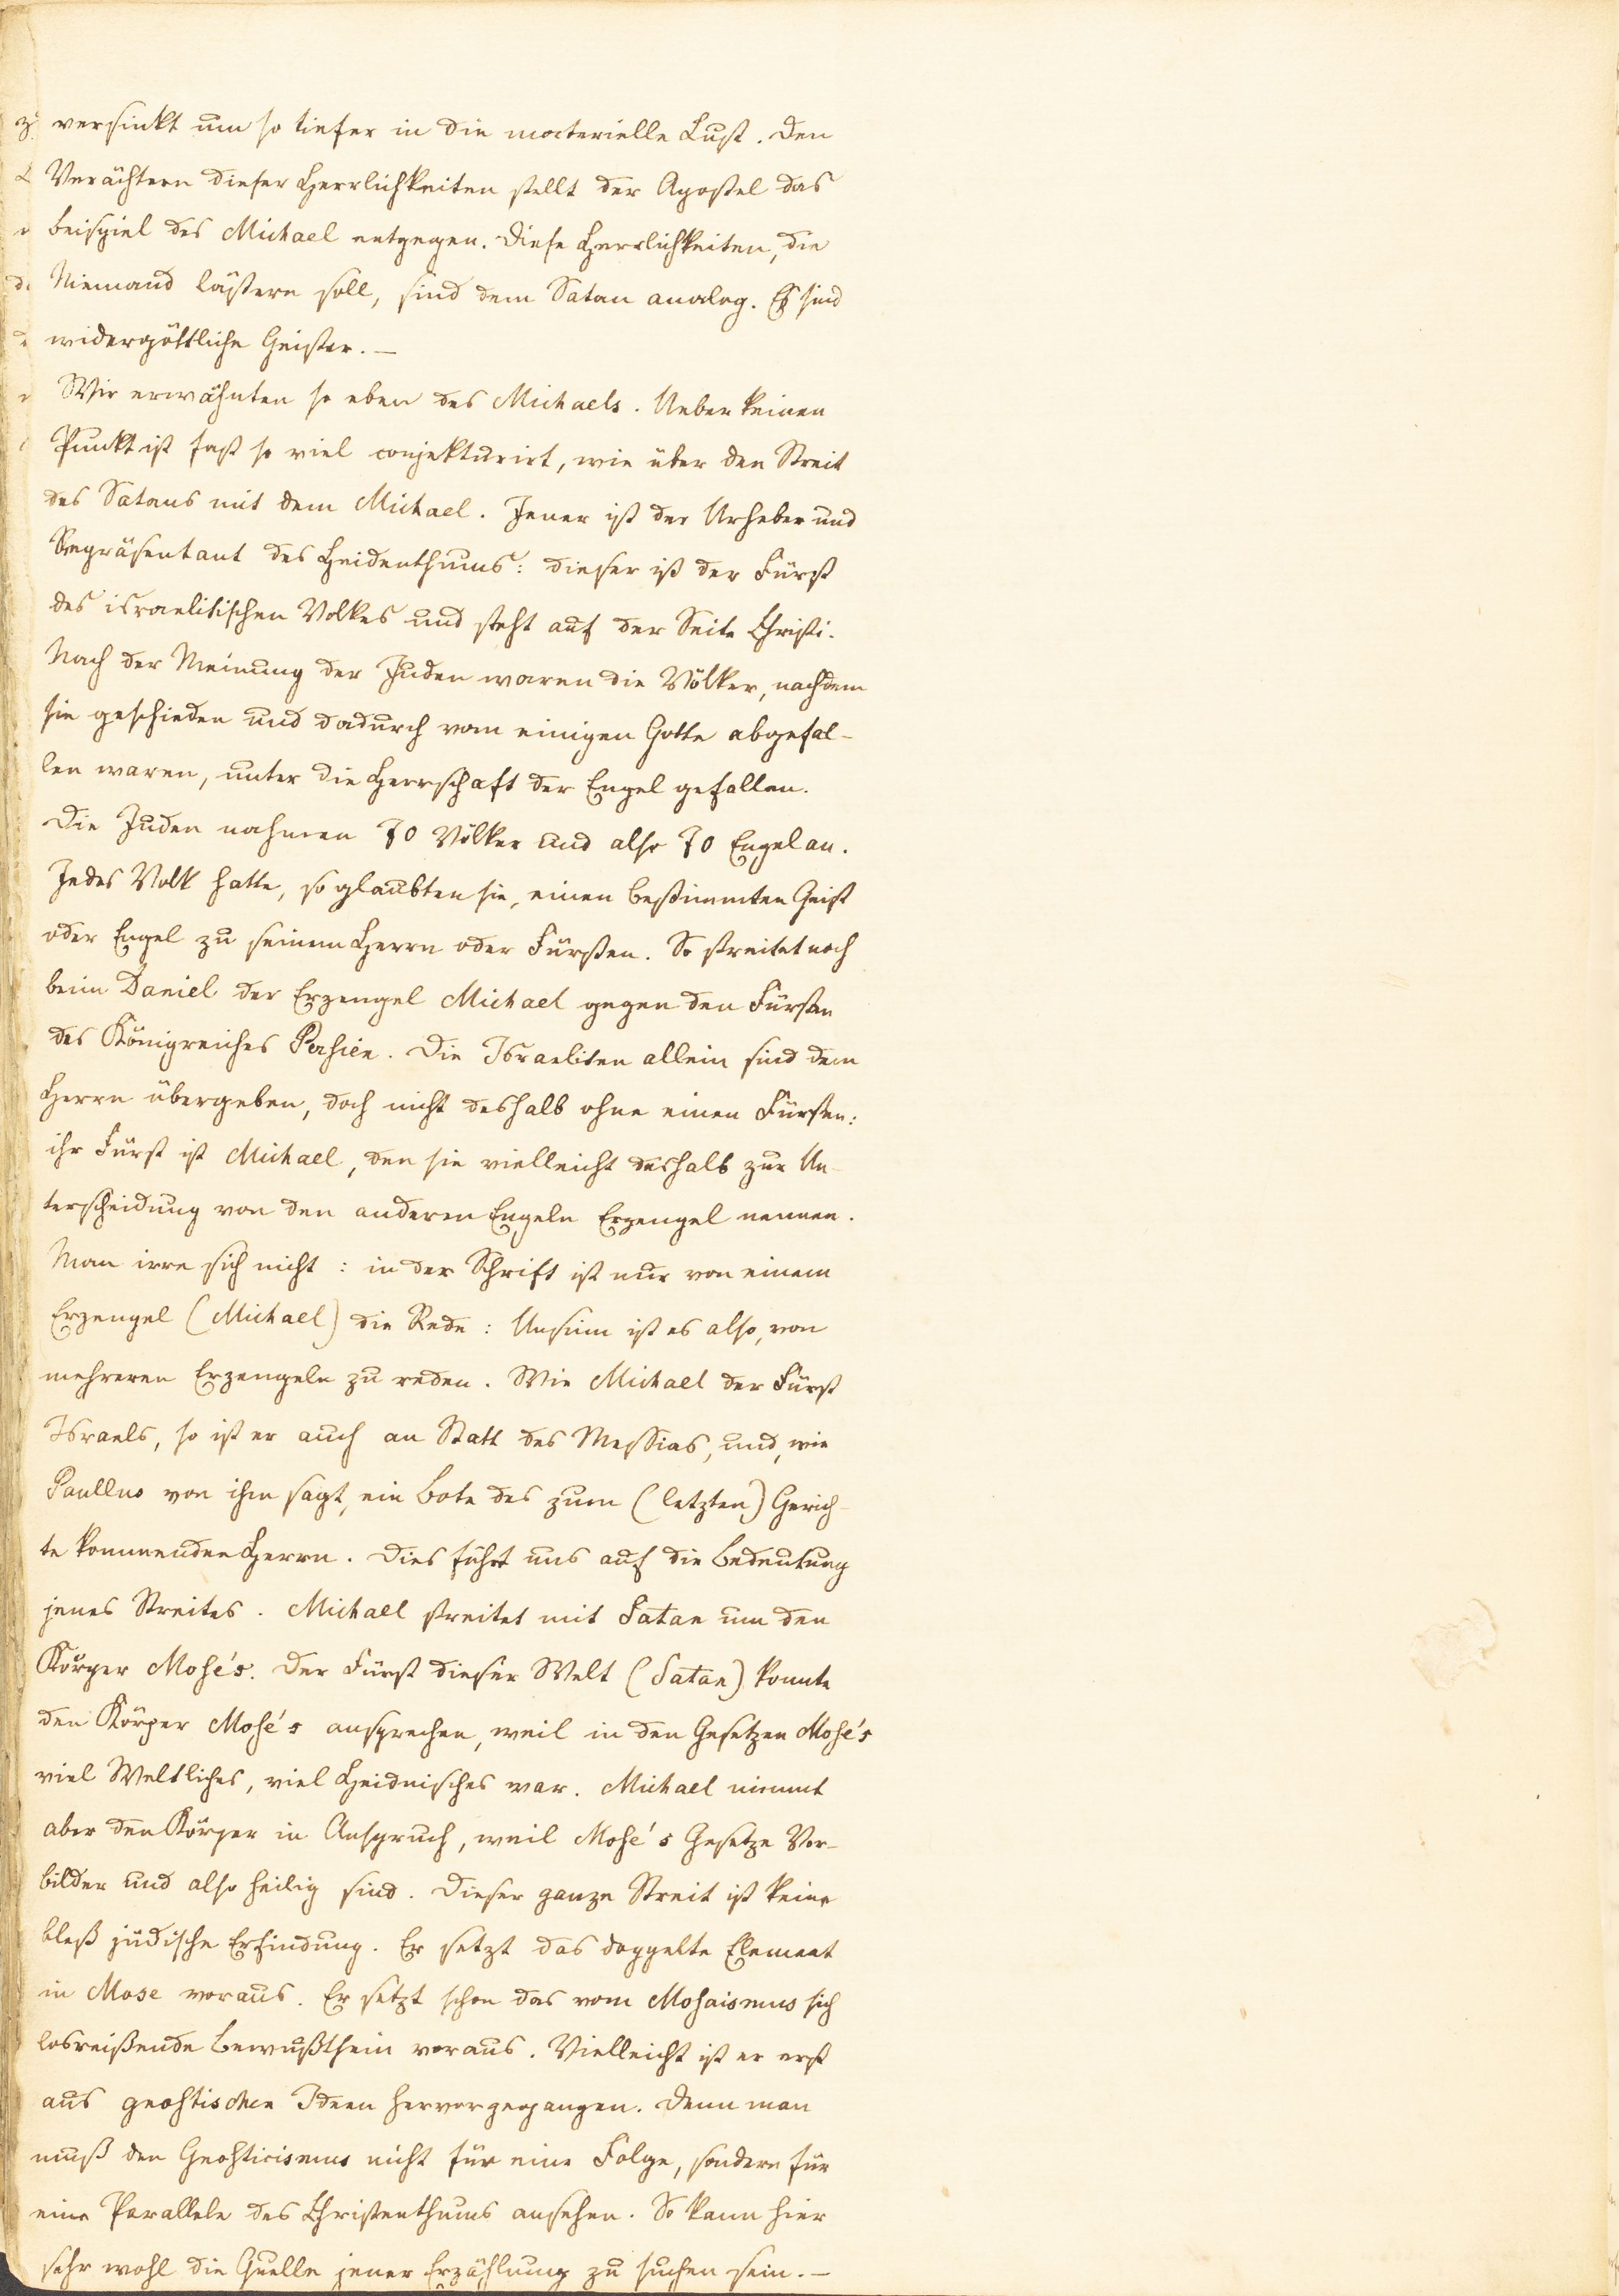 versinkt um so tiefer in die materielle Lust. Den
Verächtern dieser Herrlichkeiten stellt der Apostel das
Beispiel des Michael entgegen. Diese Herrlichkeiten, die
Niemand lästern soll, sind dem Satan analog. Es sind
widergöttliche Geister. —
Wir erwähnten so eben des Michaels. Ueber keinen
Punkt ist fast so viel conjekturirt, wie über den Streit
des Satans mit dem Michael. Jener ist der Urheber und
Repräsentant des Heidenthums: dieser ist der Fürst
des israelitischen Volkes und steht auf der Seite Christi.
Nach der Meinung der Juden waren die Völker, nachdem
sie geschieden und dadurch vom einigen Gotte abgefal-
len waren, unter die Herrschaft der Engel gefallen.
Die Juden nahmen 70 Völker und also 70 Engel an.
Jedes Volk hatte, so glaubten sie, einen bestimmten Geist
oder Engel zu seinem Herrn oder Fürsten. So streitet noch
beim Daniel der Erzengel Michael gegen den Fürsten
des Königreiches Persien. Die Israeliten allein sind dem
Herrn übergeben, doch nicht deshalb ohne einen Fürsten:
ihr Fürst ist Michael, den sie vielleicht deshalb zur Un-
terscheidung von den anderen Engeln Erzengel nennen.
Man irre sich nicht: in der Schrift ist nur von einem
Erzengel (Michael) die Rede: Unsinn ist es also, von
mehreren Erzengeln zu reden. Wie Michael der Fürst
Israels, so ist er auch an Statt des Messias, und, wie
Paullus von ihm sagt, ein Bote des zum (letzten) Gerich-
te kommenden Herrn. Dies führt uns auf die Bedeutung
jenes Streites. Michael streitet mit Satan um den
Körper Mose's. Der Fürst dieser Welt (Satan) konnte
den Körper Mose's ansprechen, weil in den Gesetzen Mose's
viel Weltliches, viel Heidnisches war. Michael nimmt
aber den Körper in Anspruch, weil Mose's Gesetze Vor-
bilder und also heilig sind. Dieser ganze Streit ist keine
bloß jüdische Erfindung. Er setzt das doppelte Element
in Mose voraus. Er setzt schon das vom Mosaismus sich
losreißende Bewußtsein voraus. Vielleicht ist er erst
aus gnostischen Ideen hervorgegangen. Denn man
muß den Gnosticismus nicht für eine Folge, sondern für
eine Parallele des Christenthums ansehen. So kann hier
sehr wohl die Quelle jener Erzählung zu suchen sein. —